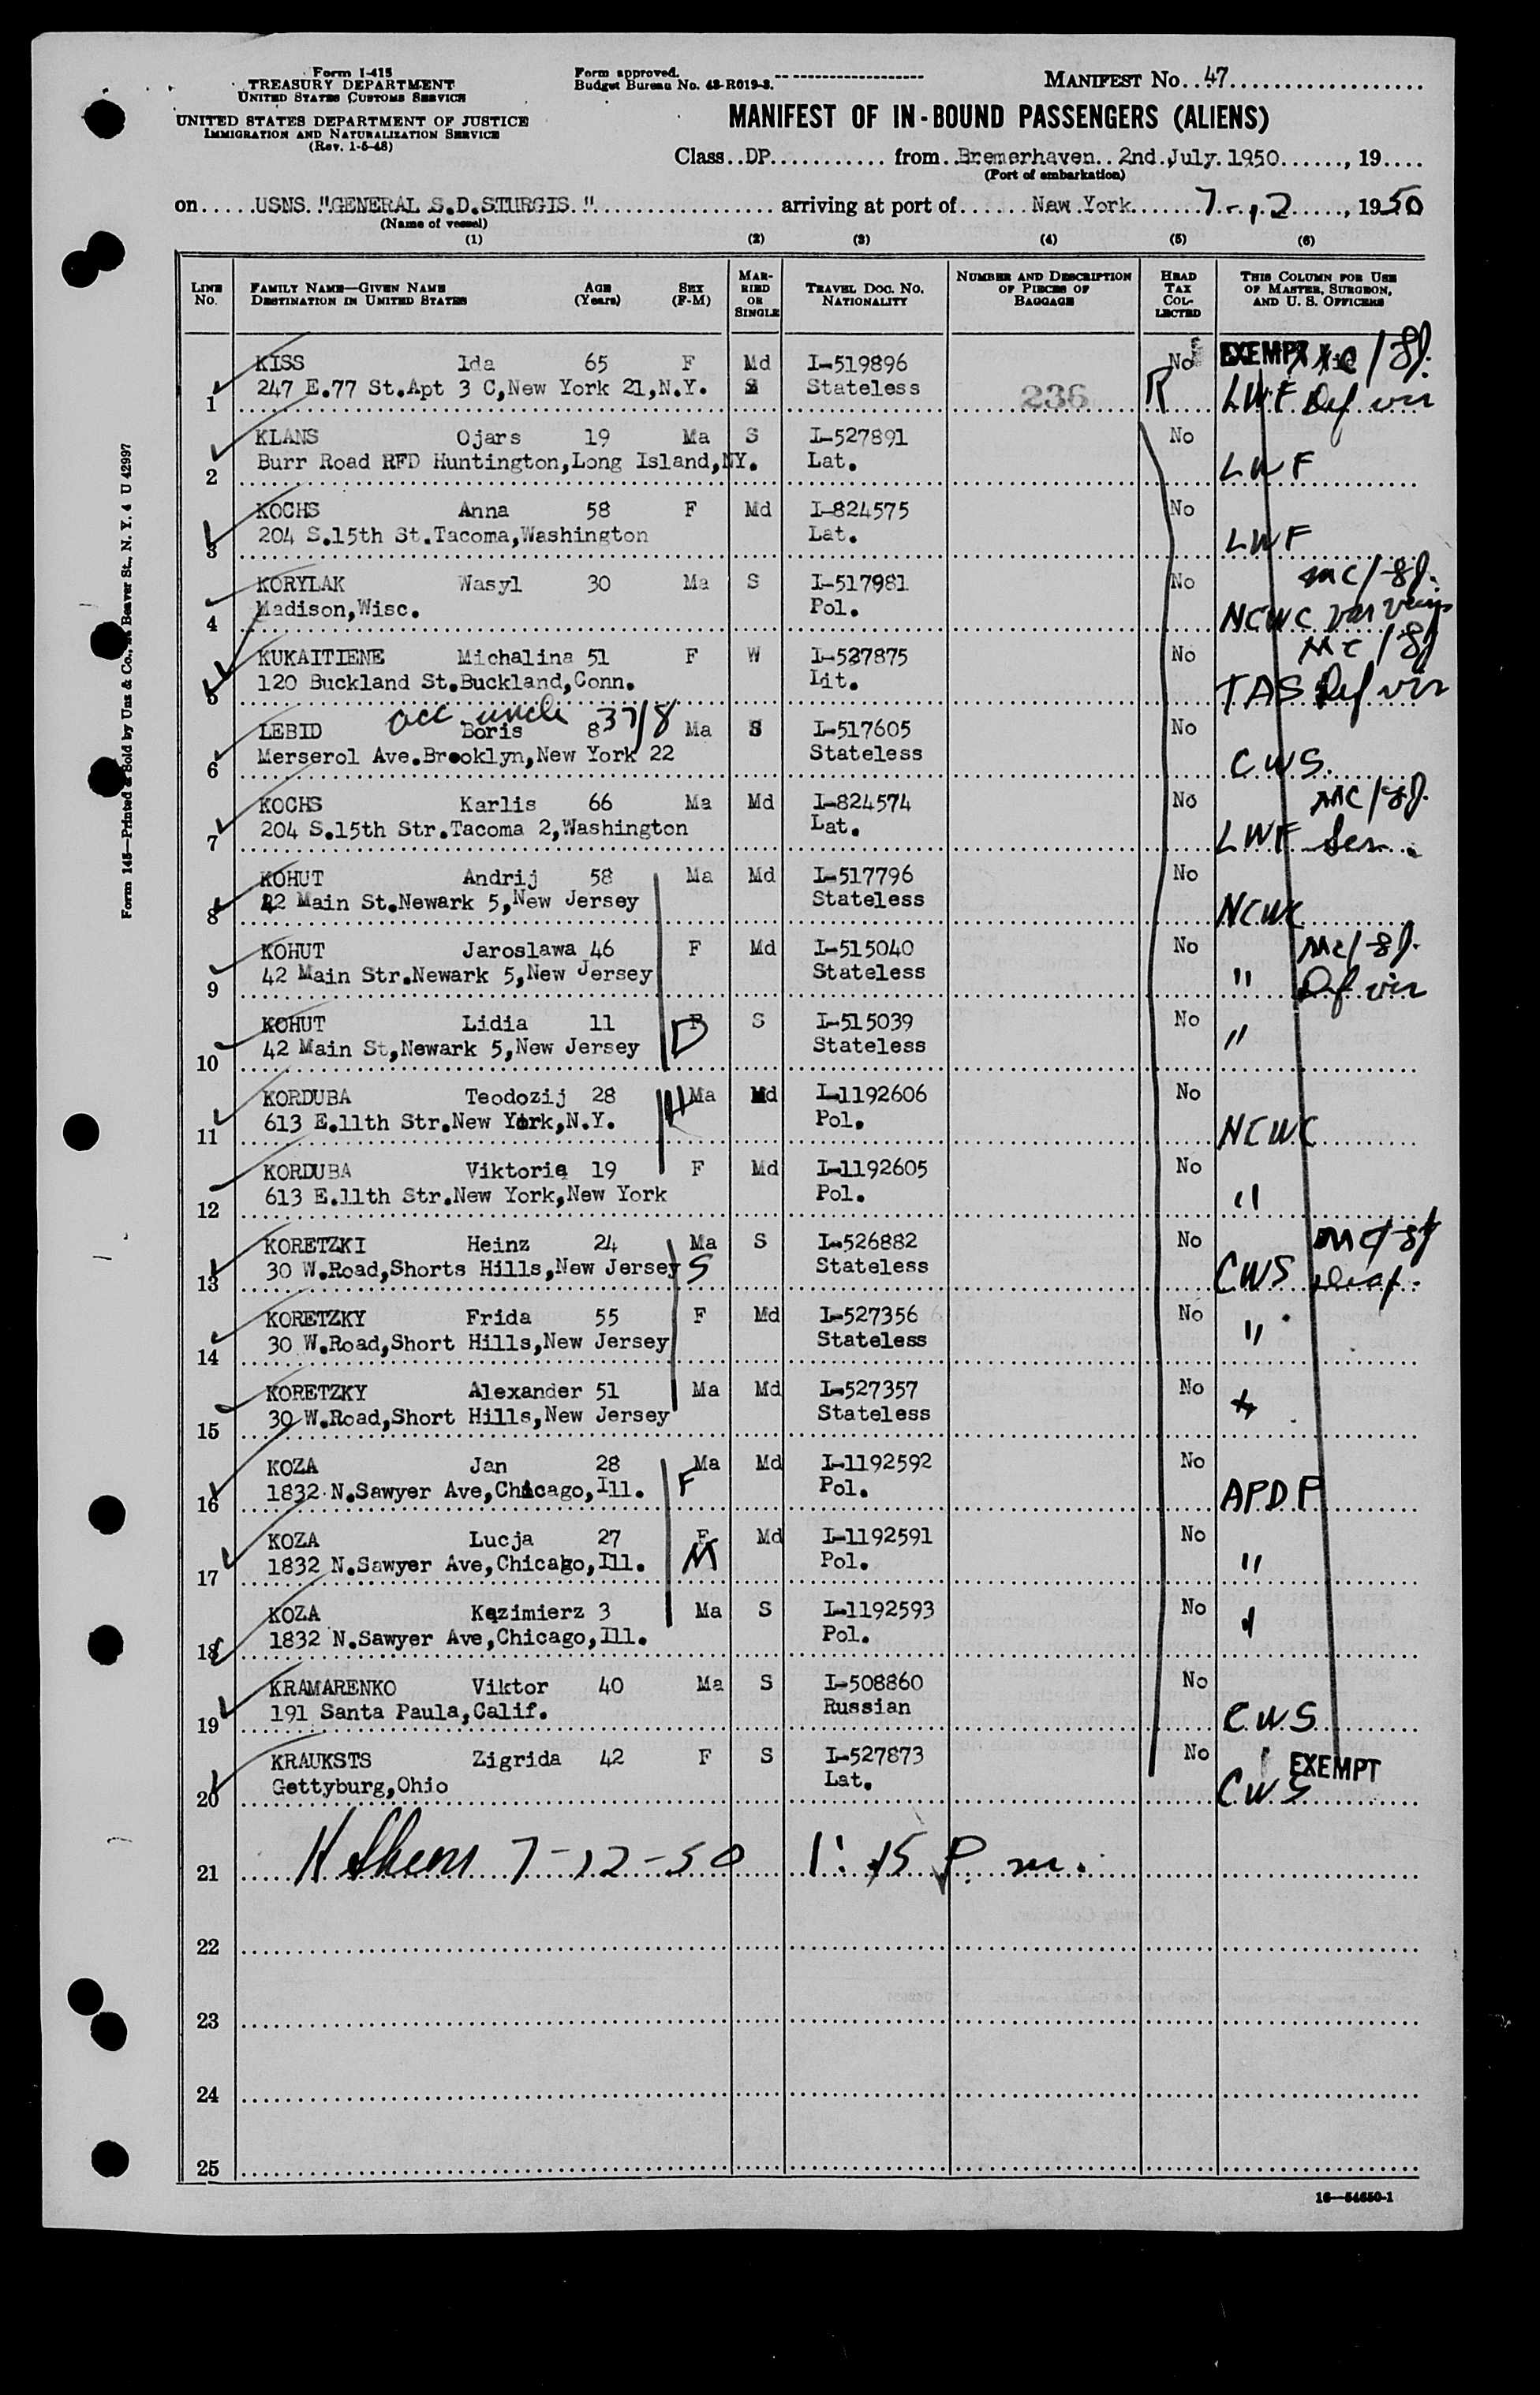 Form I-415
TREASURY DEPARTMENT
UNITED STATES CUSTOMS SERVICE
UNITED STATES DEPARTMENT OF JUSTICE
IMMIGRATION AND NATURALIZATION SERVICE
(Rev. 1-5-48)
Form approved.
Budget Bureau No. 43-R019-3.
MANIFEST No. 47
MANIFEST OF IN-BOUND PASSENGERS (ALIENS)
Class DP from Bremerhaven 2nd July 1950, 19
(Port of embarkation)
on USNS "GENERAL S.D.STURGIS " arriving at port of New York 7-12, 1950
(Name of vessel)
(1) (2) (3) (4) (5) (6)
LINE No. FAMILY NAME—GIVEN NAME DESTINATION IN UNITED STATES AGE (Years) SEX (F-M) MARRIED OR SINGLE TRAVEL DOC. NO. NATIONALITY NUMBER AND DESCRIPTION OF PIECES OF BAGGAGE HEAD TAX COLLECTED THIS COLUMN FOR USE OF MASTER, SURGEON, AND U. S. OFFICERS
KISS Ida 65 F Md I-519896 No EXEMPT
1 247 E.77 St.Apt 3 C,New York 21,N.Y. S Stateless 236 R LWF Def vis
KLANS Ojars 19 Ma S I-527891 No
2 Burr Road RFD Huntington,Long Island,NY. Lat. LWF
KOCHS Anna 58 F Md I-824575 No
3 204 S.15th St.Tacoma,Washington Lat. LWF
KORYLAK Wasyl 30 Ma S I-517981 No mc/8f.
4 Madison,Wisc. Pol. NCWC var veins
KUKAITIENE Michalina 51 F W I-527875 No mc/8f
5 120 Buckland St.Buckland,Conn. Lit. TAS Def vis
acc uncle 37/8
LEBID Boris 8 Ma S I-517605 No
6 Merserol Ave.Brooklyn,New York 22 Stateless CWS.
KOCHS Karlis 66 Ma Md I-824574 No mc/8f.
7 204 S.15th Str.Tacoma 2,Washington Lat. LWF Sen.
KOHUT Andrij 58 Ma Md I-517796 No
8 42 Main St.Newark 5,New Jersey Stateless NCWC
KOHUT Jaroslawa 46 F Md I-515040 No mc/8f.
9 42 Main Str.Newark 5,New Jersey Stateless " Def vis
KOHUT Lidia 11 F S I-515039 No
10 42 Main St,Newark 5,New Jersey D Stateless "
KORDUBA Teodozij 28 H Ma Md I-1192606 No
11 613 E.11th Str.New York,N.Y. Pol. NCWC
KORDUBA Viktoria 19 F Md I-1192605 No
12 613 E.11th Str.New York,New York Pol. "
KORETZKI Heinz 24 Ma S I-526882 No mc/8f
13 30 W.Road,Shorts Hills,New Jersey S Stateless CWS deaf.
KORETZKY Frida 55 F Md I-527356 No
14 30 W.Road,Short Hills,New Jersey Stateless "
KORETZKY Alexander 51 Ma Md I-527357 No
15 30 W.Road,Short Hills,New Jersey Stateless "
KOZA Jan 28 Ma Md I-1192592 No
16 1832 N.Sawyer Ave,Chicago,Ill. F Pol. APDP
KOZA Lucja 27 F Md I-1192591 No
17 1832 N.Sawyer Ave,Chicago,Ill. M Pol. "
KOZA Kazimierz 3 Ma S I-1192593 No
18 1832 N.Sawyer Ave,Chicago,Ill. Pol. "
KRAMARENKO Viktor 40 Ma S I-508860 No
19 191 Santa Paula,Calif. Russian C.W.S
KRAUKSTS Zigrida 42 F S I-527873 No EXEMPT
20 Gettyburg,Ohio Lat. CWS
21 7-12-50 1:15 P.m.
22
23
24
25
16—54650-1
Form 145—Printed & Sold by Unz & Co., Beaver St., N. Y. 4 U 42997